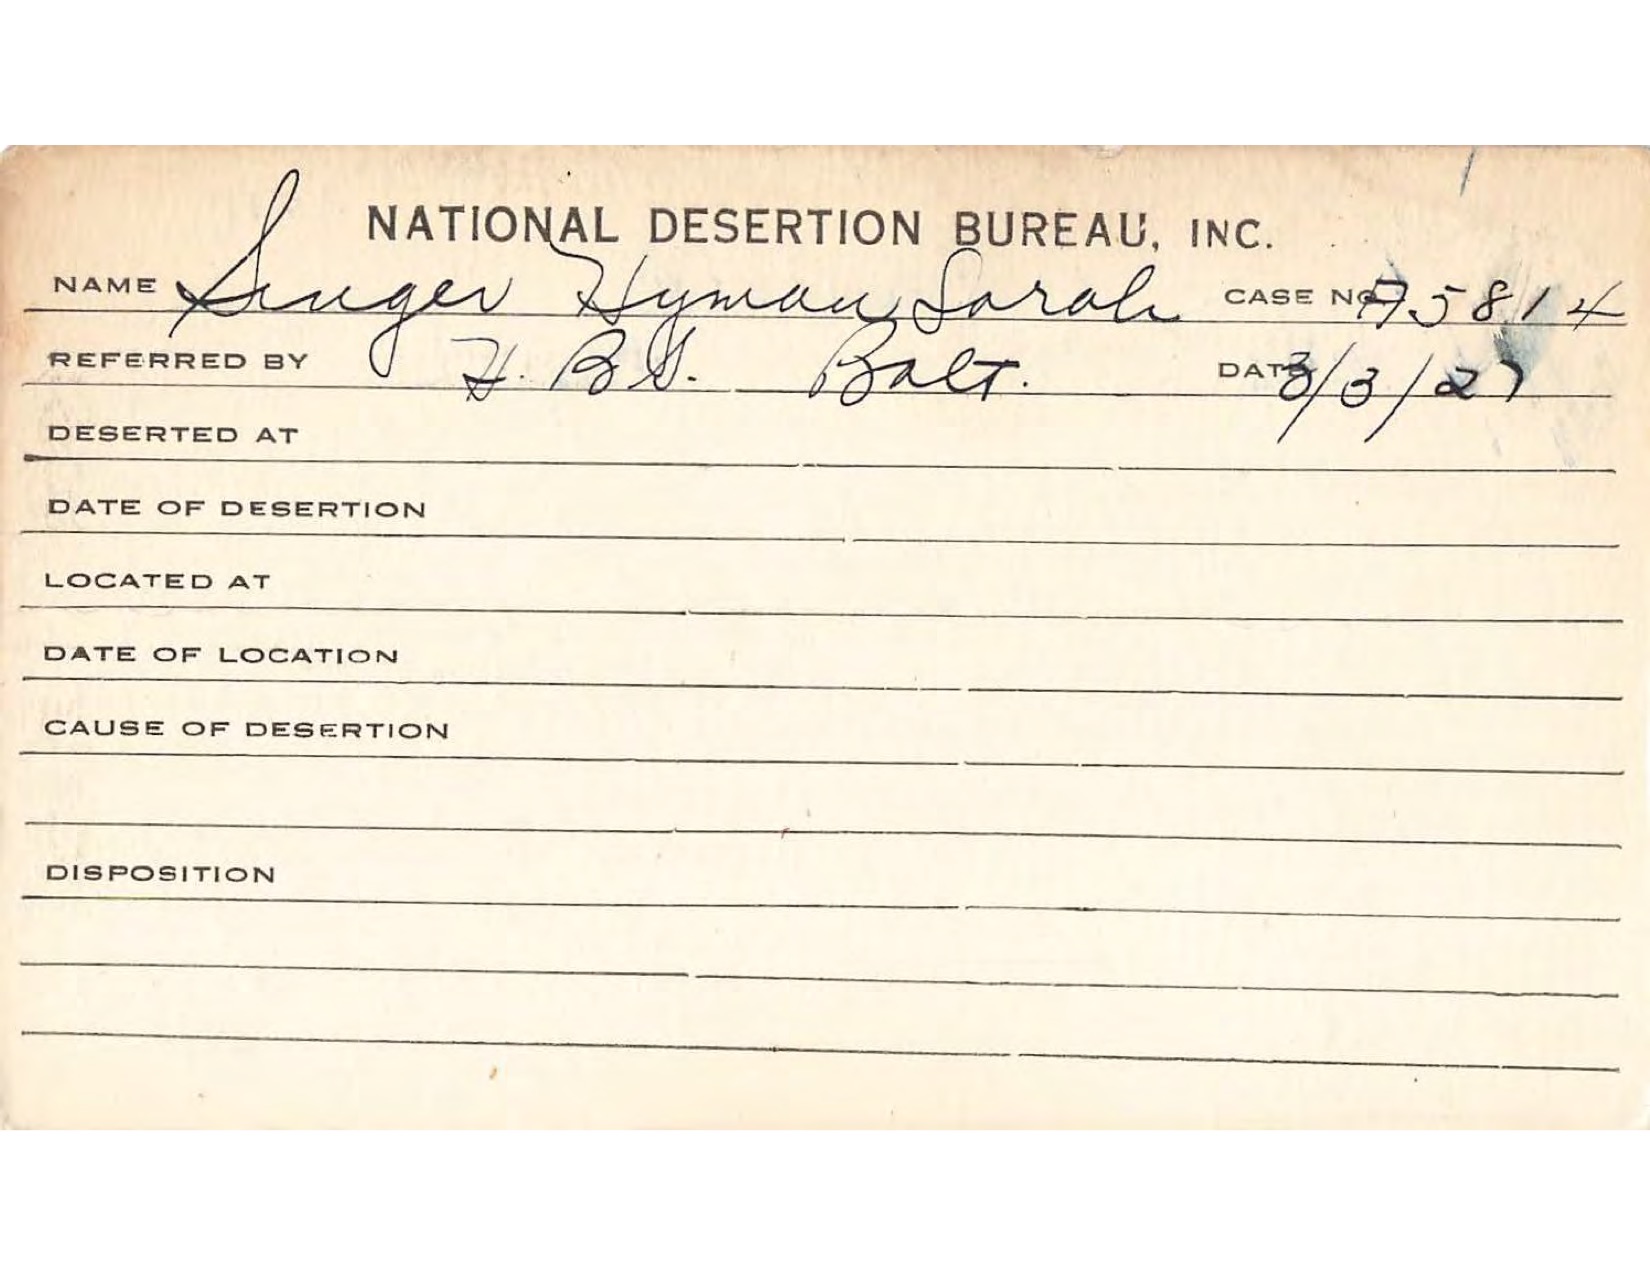 NATIONAL DESERTION BUREAU, INC.
NAME Singer Hyman Sarah CASE NO. A5814
REFERRED BY H. B. S. Balt. DATE 3/3/27
DESERTED AT
DATE OF DESERTION
LOCATED AT
DATE OF LOCATION
CAUSE OF DESERTION
DISPOSITION